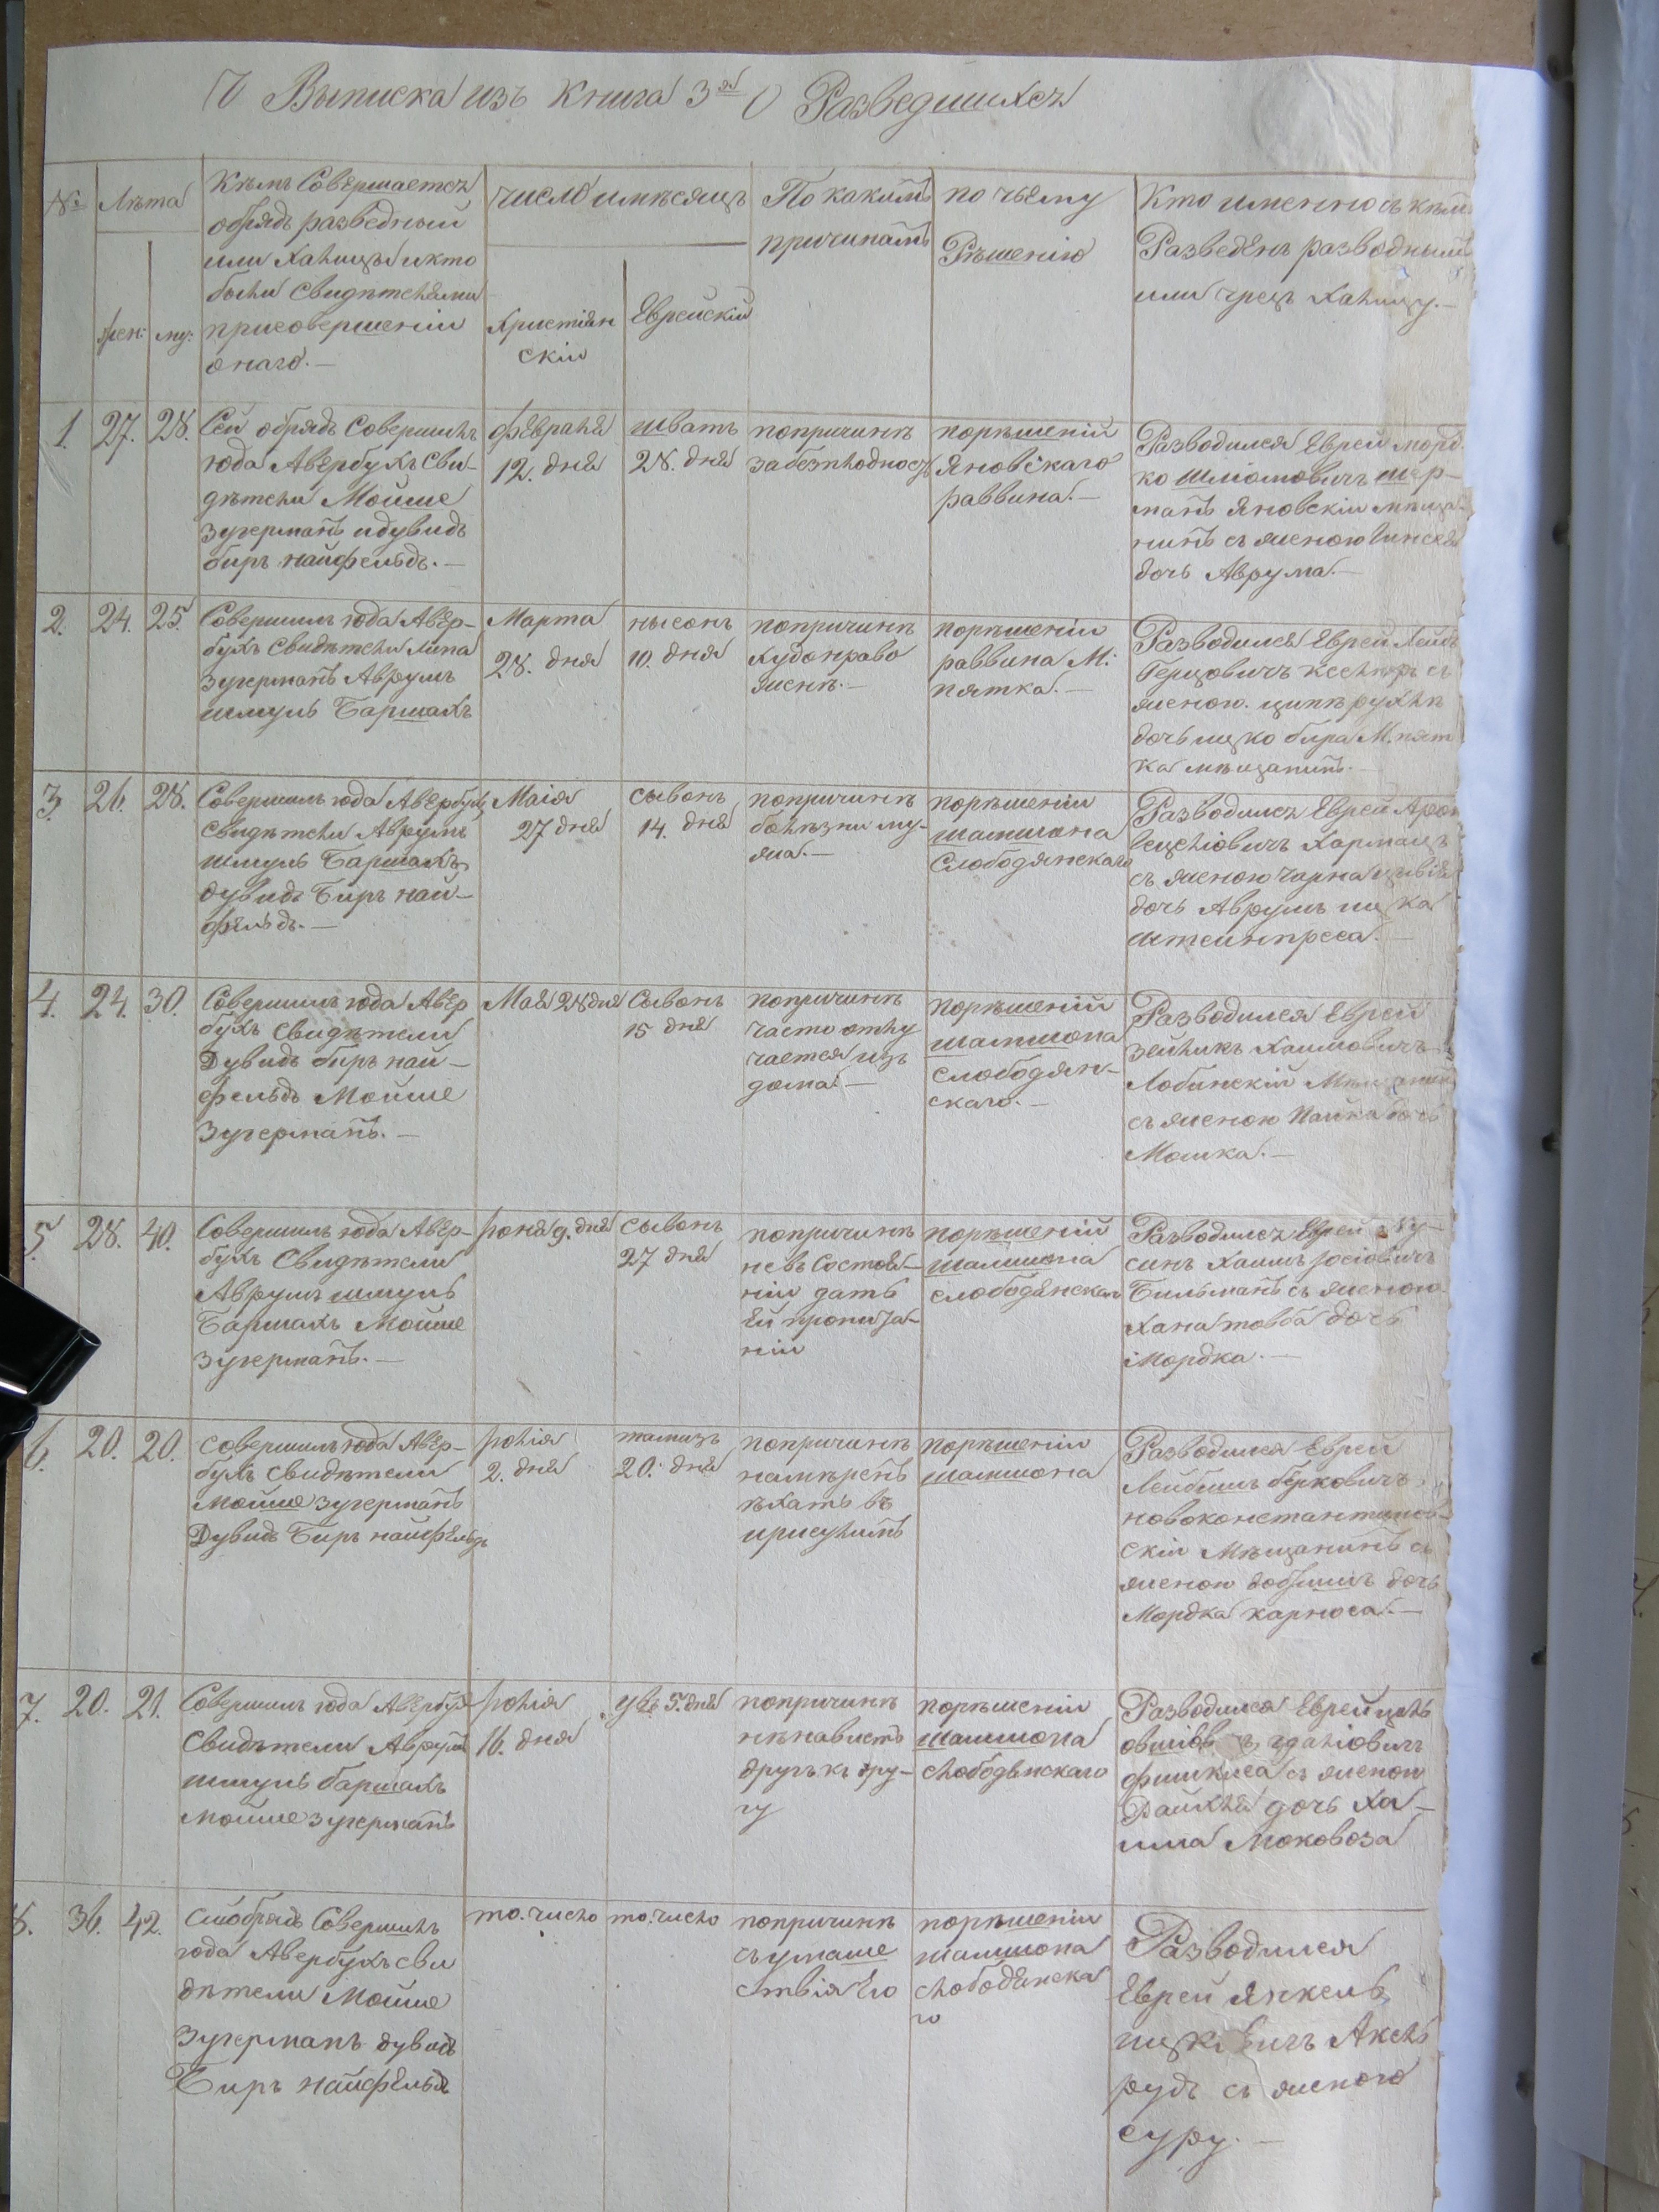 Выписка изъ книга 3я О Разведшихся
№
Лѣта
жен:
му:
Кѣмъ Совершается
обрядъ разведный
или Халицы и кто
были Свидѣтелями
присовершеніи
онаго.—
число и мѣсяцъ
Христіян
скіи
Еврейскій
По какимъ
причинамъ
по чьему
Рѣшенію
Кто именно съ кѣмъ
Разведенъ разводнымъ
или чрезъ Халицу.—
1.
27.
28.
Сей обрядъ Совершилъ
юда Авербухъ Сви-
дѣтели Мойше
Зугерманъ идувидъ
биръ найфельдъ.—
февраля
12. дня
шватъ
28. дня
попричинѣ
забезплодность
порѣшеній
Яновскаго
раввина.—
Разводился Еврей морд
ко Шліомовичъ шер-
манъ Яновскіи мѣща-
нинъ съ женою
дочь Аврума.—
2.
24.
25.
Совершилъ юда Авер-
бухъ Свидѣтели Липа
Зугерманъ Аврумъ
шмуль Баршакъ
Марта
28. дня
нысонъ
10. дня
попричинѣ
худонраво
женѣ.—
порѣшеніи
раввина М:
пятка.—
Разводился Еврей
Герцовичъ съ
женою. ципѣ рухлѣ
дочь ицко бира М. пят
ка мѣщанинъ.
3.
26.
28.
Совершилъ юда Авербухъ
Свидѣтели Аврумъ
шмуль Баршакъ
дувидъ Биръ най-
фельдъ.—
Маія
27 дня
сывонъ
14. дня
попричинѣ
болѣзни му-
жа.—
порѣшеніи
шамшона
Слободянскаго
Разводился Еврей Арон
Хармацъ
съ женою Чарна цивія
дочь Аврумъ ицка
штеинпреса.—
4.
24.
30.
Совершилъ юда Авер
бухъ Свидѣтели
Дувидъ биръ най-
фельдъ Мойше
Зугерманъ.—
Мая 28 дня
Сывонъ
15 дня
попричинѣ
часто отлу
чается изъ
дома.—
порѣшеній
шамшона
слободян-
скаго.—
Разводился Еврей
Зейликъ Хаимовичъ
Лобинскій Мѣщанин
съ женою Пайка дочь
Мошка.—
5.
28.
40.
Совершилъ юда Авер-
бухъ Свидѣтели
Аврумъ шмуль
Баршакъ Мойше
Зугерманъ.—
юня 9. дня
сывонъ
27 дня
попричинѣ
невъ Состоя-
ніи дать
Ей пропита-
ніи
порѣшеній
шамшона
слободянскаго
Разводился Еврей
Хаимъ іосіовичъ
Бильманъ съ женою
Хана товба дочь
Мордка.—
6.
20.
20.
совершилъ юда Авер-
бухъ свидѣтели
Мойше зугерманъ
Дувидъ Биръ найфельдъ
юлія
2. дня
тамизъ
20. дня
попричинѣ
намѣренъ
ѣхать въ
ирисулимъ
порѣшеніи
шамшона
Разводился Еврей
Лейбишъ берковичъ
новоконстантинов-
скіи Мѣщанинъ съ
женою добришъ дочь
Мордка карноса.—
7.
20.
21.
Совершилъ юда Авербух
Свидѣтели Аврумъ
шмуль баршакъ
Мойше зугерманъ
юлія
16. дня
увъ 5. дня
попричинѣ
нѣнависть
другъ къ дру-
гу
порѣшеніи
шамшона
слободянскаго
Разводился Еврей
съ женою
Райхля дочь Ха-
има Моковоза
8.
36.
42.
Сійобрядъ Совершилъ
юда Авербухъ сви
дѣтели Мойше
Зугерманъ дувидъ
Биръ найфельд
то. число
то. число
попричинѣ
съумаше
ствія Его
порѣшеніи
шамшона
слободянска
го
Разводился
Еврей Янкель
ицковичъ Аксель
рудъ съ женою
суру.—